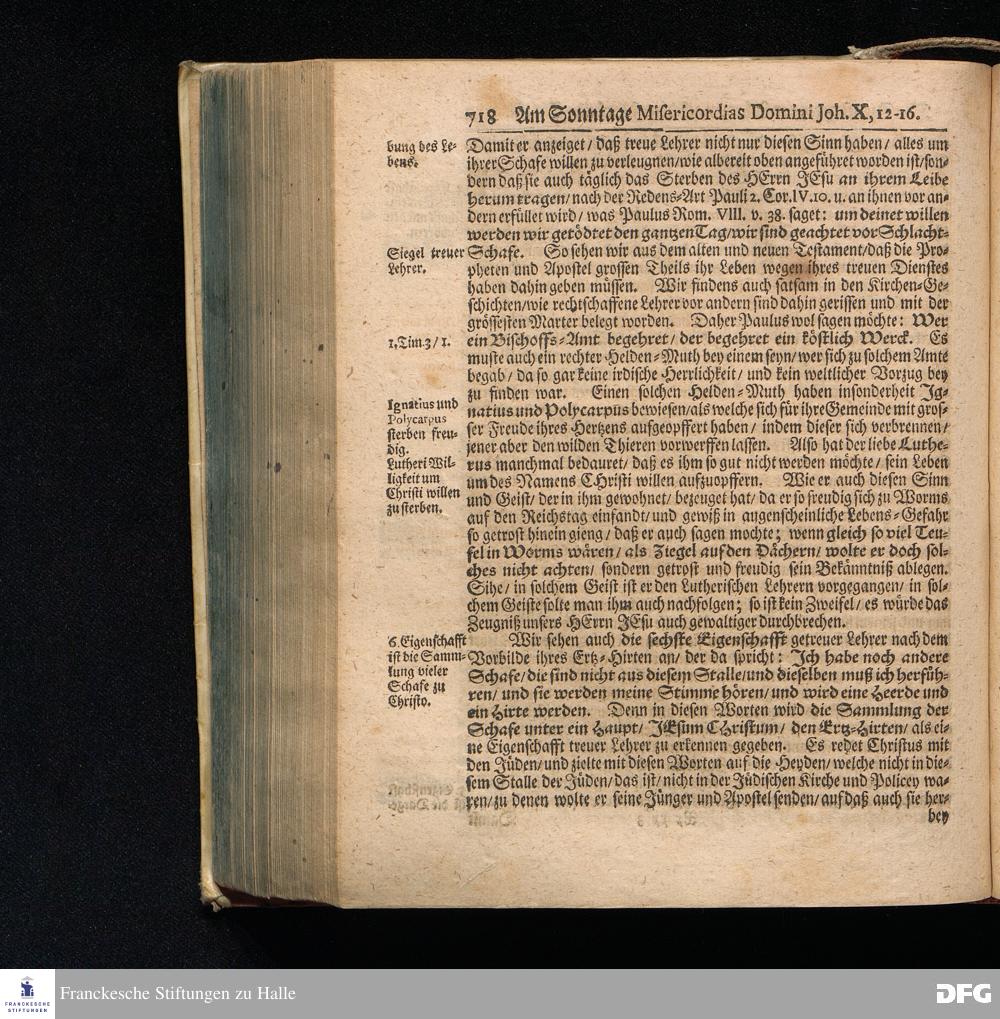 718 Am Sonntage Misericordias Domini Joh. X, 12-16.
bung des Le-
bens.
Damit er anzeiget / daß treue Lehrer nicht nur diesen Sinn haben / alles um
ihrer Schafe willen zu verleugnen / wie albereit oben angeführet worden ist / son-
dern daß sie auch täglich das Sterben des HErrn JEsu an ihrem Leibe
herum tragen / nach der Redens-Art Pauli 2. Cor. IV. 10. u. an ihnen vor an-
dern erfüllet wird / was Paulus Rom. VIII. v. 38. saget: um deinet willen
werden wir getödtet den gantzen Tag / wir sind geachtet vor Schlacht-
Siegel treuer
Lehrer.
Schafe. So sehen wir aus dem alten und neuen Testament / daß die Pro-
pheten und Apostel grossen Theils ihr Leben wegen ihres treuen Dienstes
haben dahin geben müssen. Wir findens auch satsam in den Kirchen-Ge-
schichten / wie rechtschaffene Lehrer vor andern sind dahin gerissen und mit der
grössesten Marter belegt worden. Daher Paulus wol sagen möchte: Wer
1. Tim. 3 / 1.
ein Bischoffs-Amt begehret / der begehret ein köstlich Werck. Es
muste auch ein rechter Helden-Muth bey einem seyn / wer sich zu solchem Amte
begab / da so gar keine irdische Herrlichkeit / und kein weltlicher Vorzug bey
zu finden war. Einen solchen Helden-Muth haben insonderheit Ig-
Ignatius und
Polycarpus
sterben freu-
dig.
natius und Polycarpus bewiesen / als welche sich für ihre Gemeinde mit gros-
ser Freude ihres Hertzens aufgeopffert haben / indem dieser sich verbrennen /
jener aber den wilden Thieren vorwerffen lassen. Also hat der liebe Luthe-
Lutheri Wil-
ligkeit um
Christi willen
zu sterben.
rus manchmal bedauret / daß es ihm so gut nicht werden möchte / sein Leben
um des Namens CHristi willen aufzuopffern. Wie er auch diesen Sinn
und Geist / der in ihm gewohnet / bezeuget hat / da er so freudig sich zu Worms
auf den Reichstag einfandt / und gewiß in augenscheinliche Lebens-Gefahr
so getrost hinein gieng / daß er auch sagen mochte; wenn gleich so viel Teu-
fel in Worms wären / als Ziegel auf den Dächern / wolte er doch sol-
ches nicht achten / sondern getrost und freudig sein Bekänntniß ablegen.
Sihe / in solchem Geist ist er den Lutherischen Lehrern vorgegangen / in sol-
chem Geiste solte man ihm auch nachfolgen; so ist kein Zweifel / es würde das
Zeugniß unsers HErrn JEsu auch gewaltiger durchbrechen.
6. Eigenschafft
ist die Samm-
lung vieler
Schafe zu
Christo.
Wir sehen auch die sechste Eigenschafft getreuer Lehrer nach dem
Vorbilde ihres Ertz-Hirten an / der da spricht: Ich habe noch andere
Schafe / die sind nicht aus diesem Stalle / und dieselben muß ich herfüh-
ren / und sie werden meine Stimme hören / und wird eine Heerde und
ein Hirte werden. Denn in diesen Worten wird die Sammlung der
Schafe unter ein Haupt / JEsum CHristum / den Ertz-Hirten / als ei-
ne Eigenschafft treuer Lehrer zu erkennen gegeben. Es redet Christus mit
den Jüden / und zielte mit diesen Worten auf die Heyden / welche nicht in die-
sem Stalle der Jüden / das ist / nicht in der Jüdischen Kirche und Policey wa-
ren / zu denen wolte er seine Jünger und Apostel senden / auf daß auch sie her-
bey
FRANCKESCHE
STIFTUNGEN
Franckesche Stiftungen zu Halle
DFG